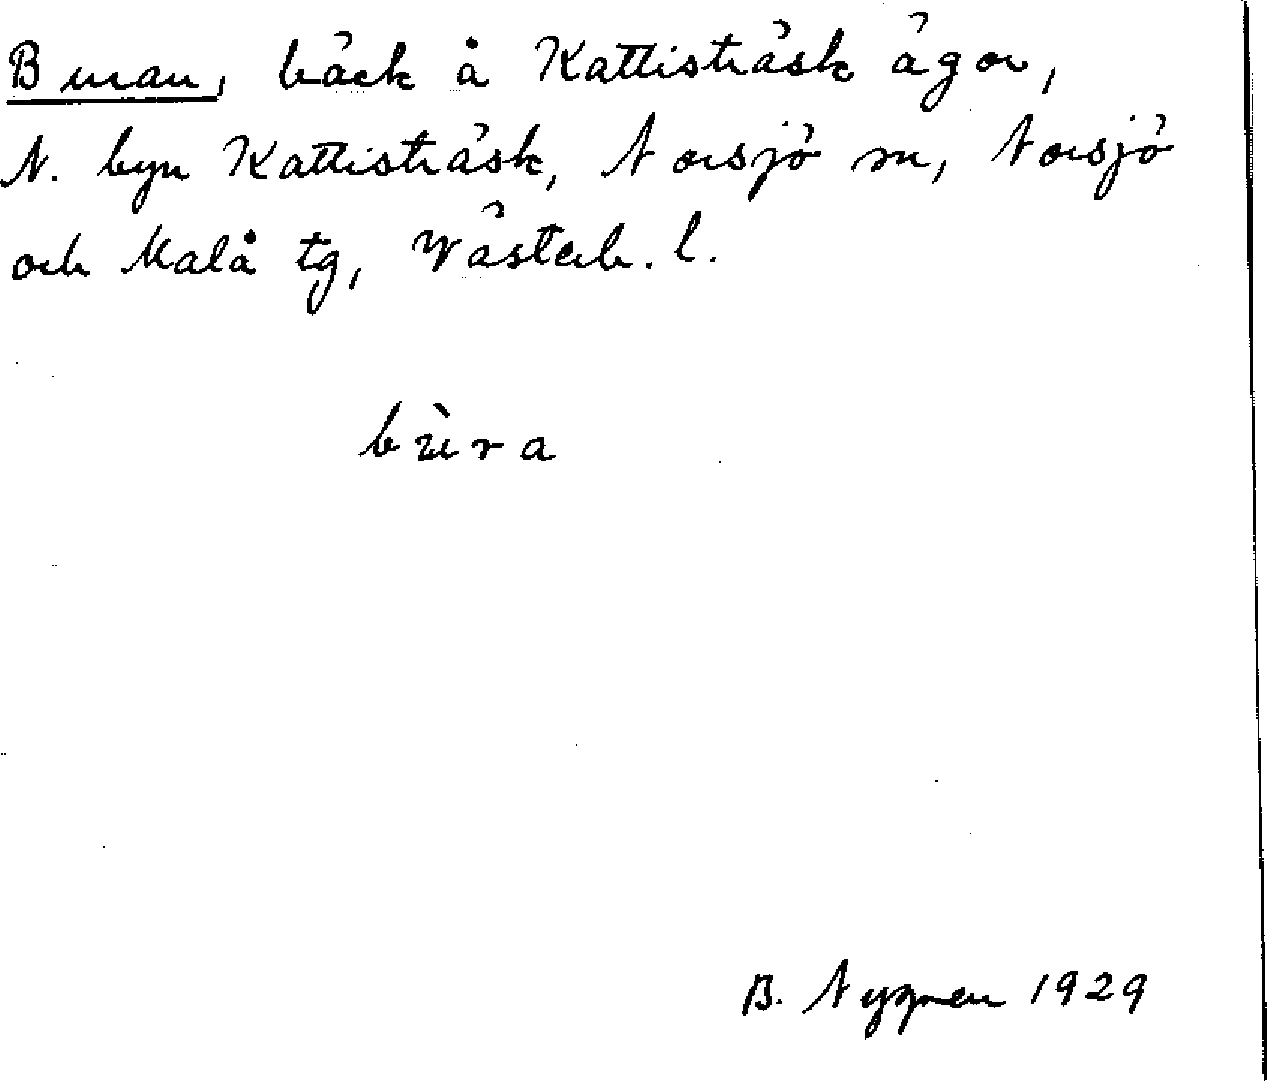 Buran, bäck å Kattisträsk ägor,
N. byn Kattisträsk, Norsjö sn, Norsjö
och Malå tg, Västerb. l.
bùra
B. Nygren 1929